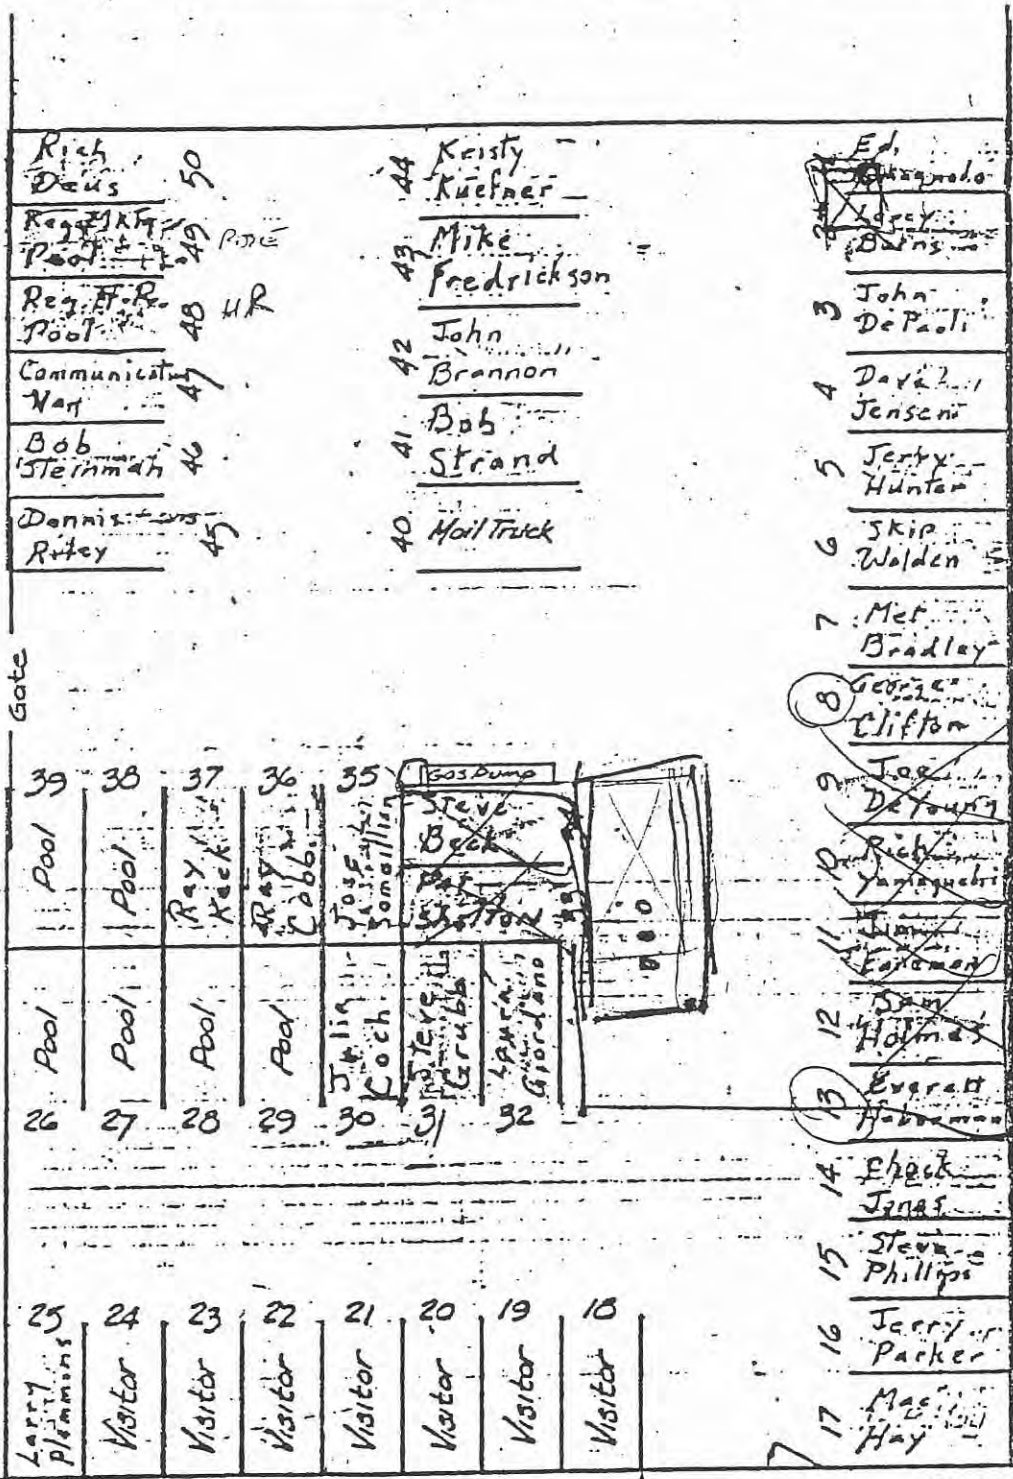 Rich
Deus
50
Pool
49
Reg.
Pool
48
HR
Communication
Van
47
Bob
Steinman
46
Dennis
Riley
45
44
Kristy
Kuefner
43
Mike
Fredrickson
42
John
Brannon
41
Bob
Strand
40
Mail Truck
Ed.
Larry
Burns
3
John
DePaoli
4
Dave
Jensen
5
Jerry
Hunter
6
Skip
Walden
7
Mer
Bradley
8
George
Clifton
9
Joe
DeYoung
10
Rich
Yamaguchi
11
Jim
Foreman
12
Sam
Holmes
13
Everett
14
Chuck
Jones
15
Steve
Phillips
16
Jerry
Parker
17
Mac
Hay
Gate
39
Pool
38
Pool
37
Ray
36
Ray
Cobb
35
Gas Pump
Steve
Beck
Pool
26
Pool
27
Pool
28
Pool
29
Julia
Coch
30
Steve
Grubb
31
Laura
Giordano
32
25
Larry
Plemmons
24
Visitor
23
Visitor
22
Visitor
21
Visitor
20
Visitor
19
Visitor
18
Visitor